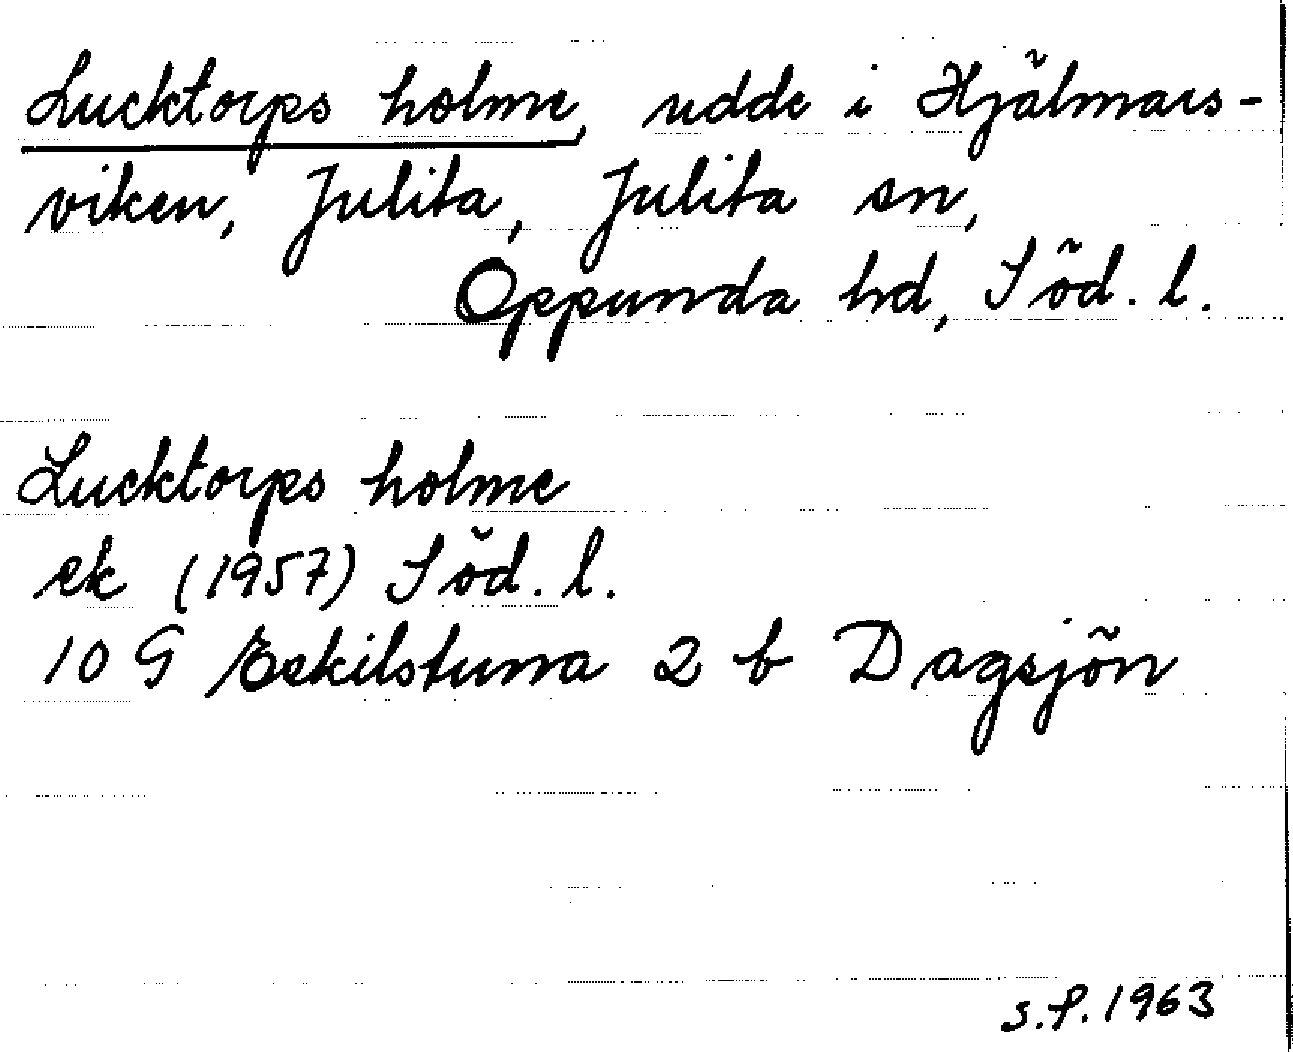 Lucktorps holme, udde i Hjälmars-
viken, Julita, Julita sn,
Oppunda hd, Söd. l.
Lucktorps holme
ek (1957) Söd. l.
10 G Eskilstuna 2 b Dagsjön
S.P. 1963